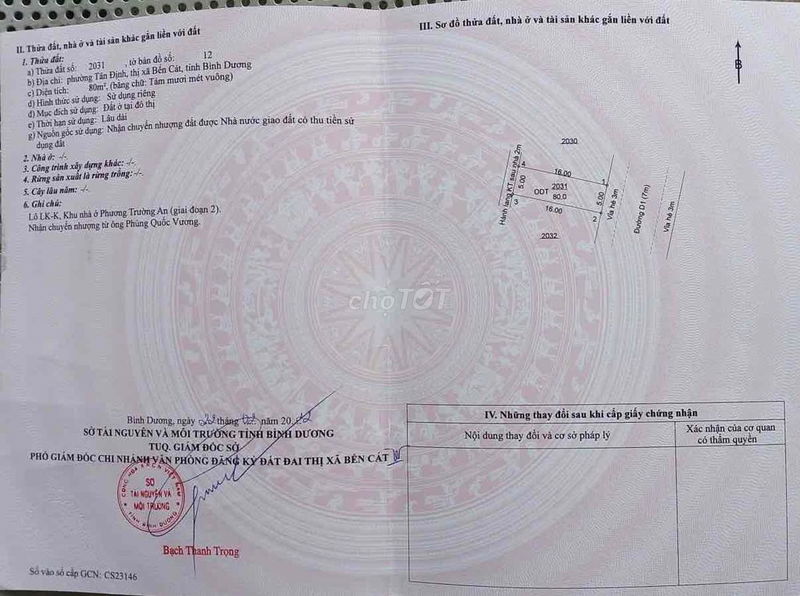 II. Thửa đất, nhà ở và tài sản khác gắn liền với đất
1. Thửa đất:
a) Thửa đất số: 2031 , tờ bản đồ số: 12
b) Địa chỉ: phường Tân Định, thị xã Bến Cát, tỉnh Bình Dương
c) Diện tích: 80m², (bằng chữ: Tám mươi mét vuông)
d) Hình thức sử dụng: Sử dụng riêng
đ) Mục đích sử dụng: Đất ở tại đô thị
e) Thời hạn sử dụng: Lâu dài
g) Nguồn gốc sử dụng: Nhận chuyển nhượng đất được Nhà nước giao đất có thu tiền sử
dụng đất
2. Nhà ở: -/-
3. Công trình xây dựng khác: -/-
4. Rừng sản xuất là rừng trồng: -/-
5. Cây lâu năm: -/-
6. Ghi chú:
Lô LK-K, Khu nhà ở Phương Trường An (giai đoạn 2).
Nhận chuyển nhượng từ ông Phùng Quốc Vương.
Bình Dương, ngày tháng năm 20
SỞ TÀI NGUYÊN VÀ MÔI TRƯỜNG TỈNH BÌNH DƯƠNG
TUQ. GIÁM ĐỐC SỞ
PHÓ GIÁM ĐỐC CHI NHÁNH VĂN PHÒNG ĐĂNG KÝ ĐẤT ĐAI THỊ XÃ BẾN CÁT
CỘNG HÒA X.H.C.N VIỆT NAM
SỞ
TÀI NGUYÊN VÀ
MÔI TRƯỜNG
TỈNH BÌNH DƯƠNG
Bạch Thanh Trọng
Số vào sổ cấp GCN: CS23146
III. Sơ đồ thửa đất, nhà ở và tài sản khác gắn liền với đất
B
2030
Hành lang KT sau nhà 2m
4
16.00
1
5.00
ODT
2031
80.0
5.00
3
16.00
2
2032
Vỉa hè 3m
Đường D1 (7m)
Vỉa hè 3m
chợTỐT
IV. Những thay đổi sau khi cấp giấy chứng nhận
Nội dung thay đổi và cơ sở pháp lý
Xác nhận của cơ quan
có thẩm quyền